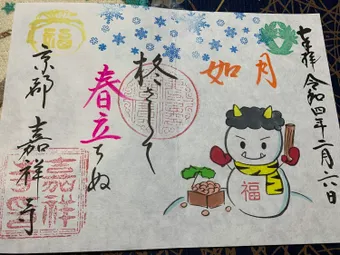 七福拝 令和四年二月六日
如月
柊さして
春立ちぬ
福
京都 嘉祥寺
福
嘉祥